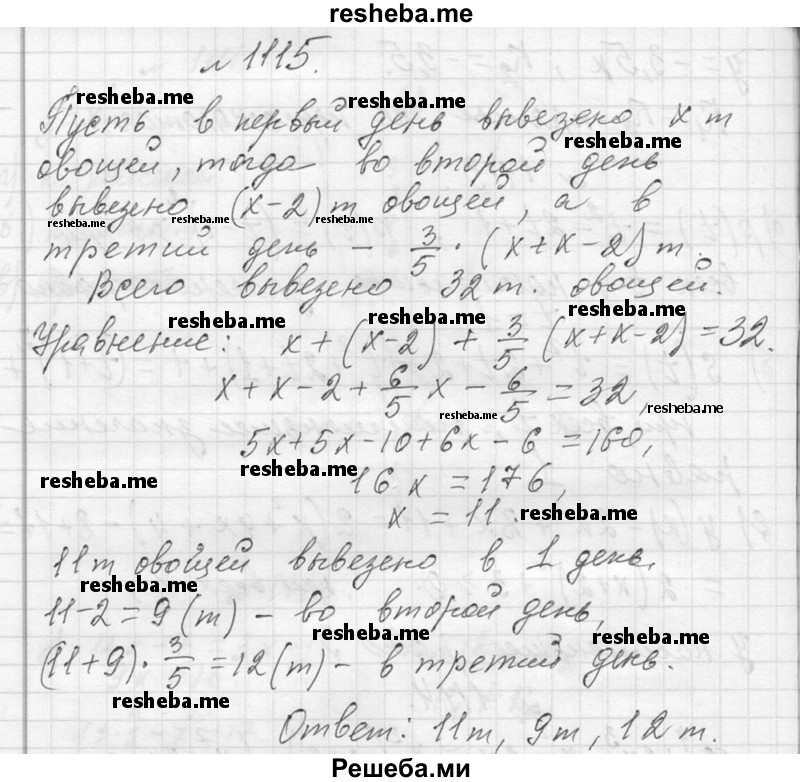 resheba.me
№ 1115.
resheba.me resheba.me
Пусть в первый день вывезено x т
resheba.me
овощей, тогда во второй день
вывезено (x-2) т овощей, а в
resheba.me resheba.me resheba.me
третий день – 3/5 · (x+x-2) т.
Всего вывезено 32 т. овощей.
resheba.me resheba.me resheba.me
Уравнение: x + (x-2) + 3/5 (x+x-2) = 32.
x + x - 2 + 6/5 x - 6/5 = 32,
resheba.me resheba.me
5x+5x-10+6x-6 = 160,
resheba.me resheba.me
16x = 176,
x = 11.
resheba.me
11 т овощей вывезено в 1 день.
resheba.me
11-2 = 9 (т) – во второй день,
resheba.me resheba.me
(11+9) · 3/5 = 12 (т) – в третий день.
resheba.me
Ответ: 11 т, 9 т, 12 т.
Решеба.ми